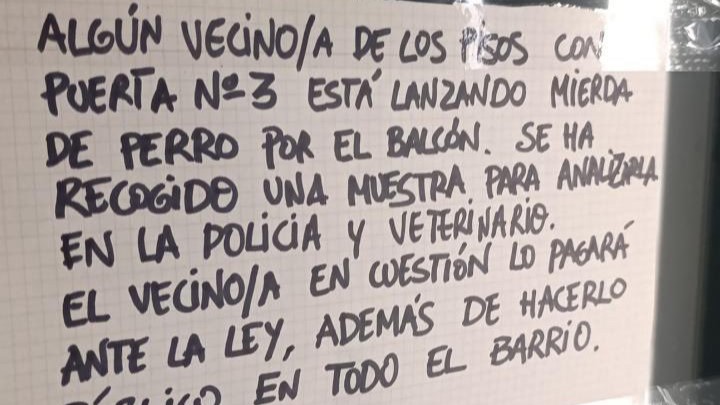 ALGÚN VECINO/A DE LOS PISOS CON
PUERTA Nº3 ESTÁ LANZANDO MIERDA
DE PERRO POR EL BALCÓN. SE HA
RECOGIDO UNA MUESTRA PARA ANALIZARLA
EN LA POLICIA Y VETERINARIO.
EL VECINO/A EN CUESTIÓN LO PAGARÁ
ANTE LA LEY, ADEMÁS DE HACERLO
PÚBLICO EN TODO EL BARRIO.